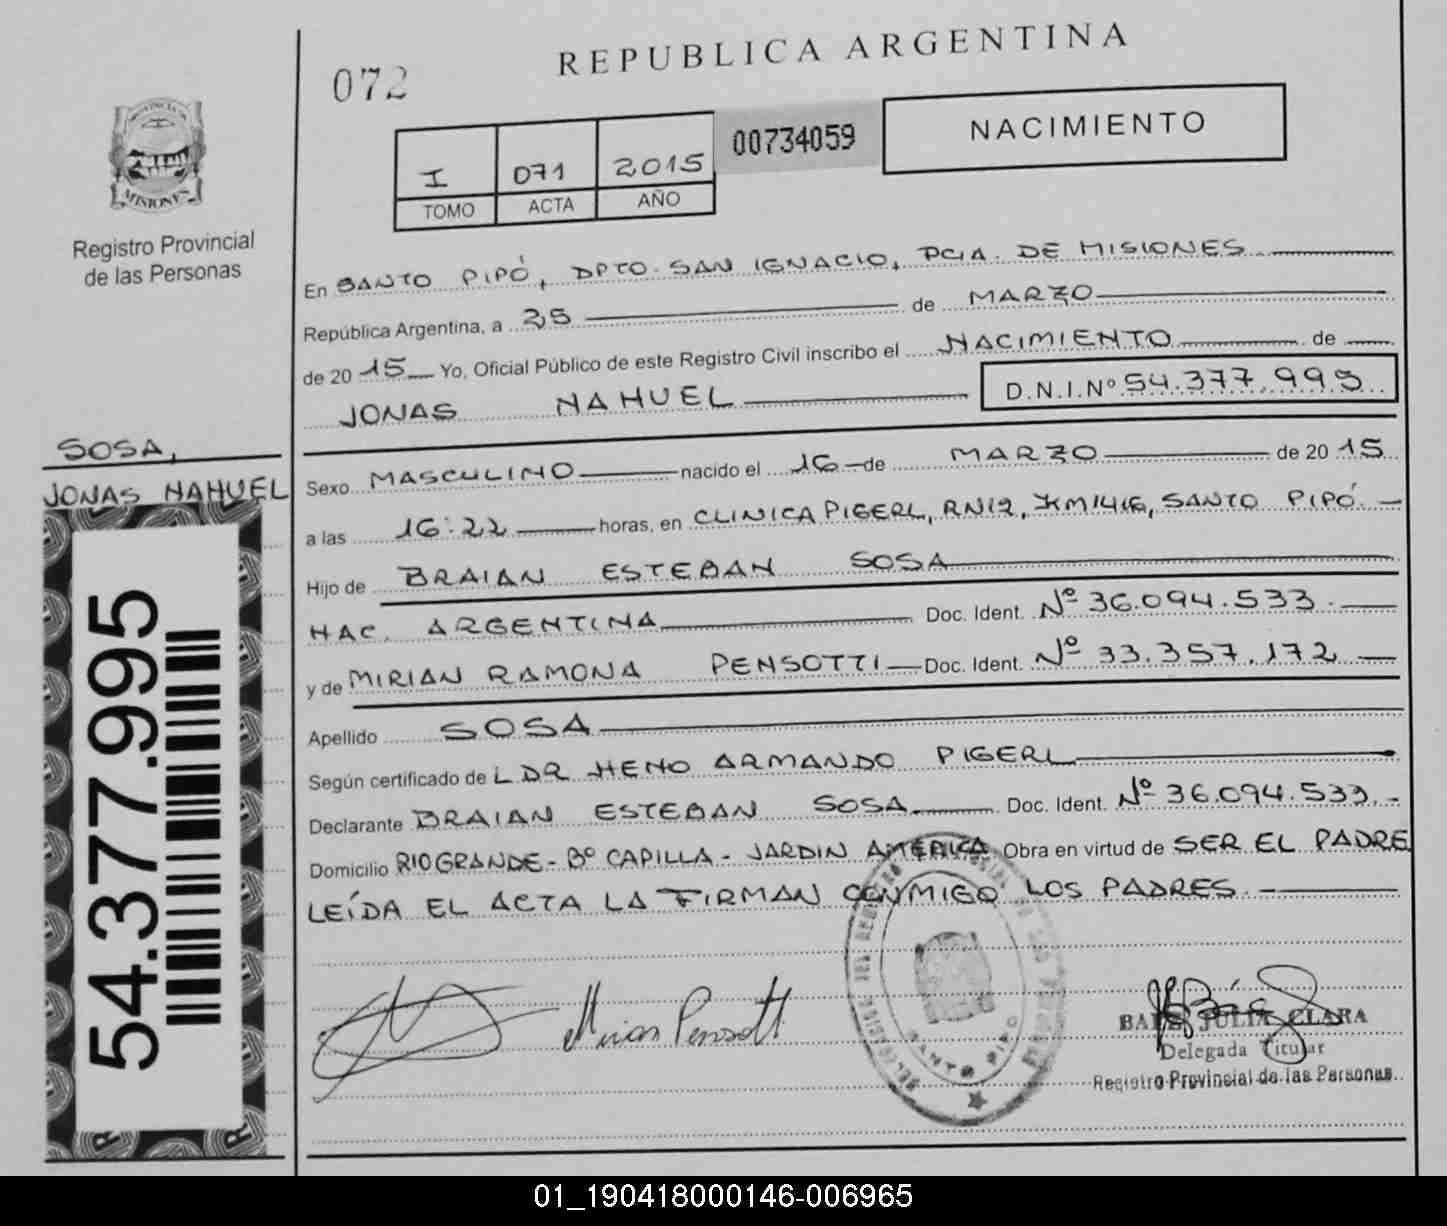 REPUBLICA ARGENTINA
072
I 071 2015 00734059 NACIMIENTO
TOMO ACTA AÑO
MISIONES
Registro Provincial
de las Personas
En SANTO PIPÓ, DPTO. SAN IGNACIO, PCIA. DE MISIONES
República Argentina, a 25 de MARZO
de 2015 Yo, Oficial Público de este Registro Civil inscribo el NACIMIENTO de
JONAS NAHUEL D.N.I.Nº 54.377.995
SOSA,
JONAS NAHUEL
54.377.995
Sexo MASCULINO nacido el 16 de MARZO de 2015
a las 16:22 horas, en CLINICA PIGERL, RN12, KM1416, SANTO PIPÓ.
Hijo de BRAIAN ESTEBAN SOSA
NAC. ARGENTINA Doc. Ident. Nº 36.094.533.
y de MIRIAN RAMONA PENSOTTI Doc. Ident. Nº 33.357.172
Apellido SOSA
Según certificado de L DR HENO ARMANDO PIGERL
Declarante BRAIAN ESTEBAN SOSA Doc. Ident. Nº 36.094.533.-
Domicilio RIO GRANDE - Bº CAPILLA - JARDIN AMÉRICA Obra en virtud de SER EL PADRE
LEÍDA EL ACTA LA FIRMAN CONMIGO LOS PADRES.
Mirian Pensotti
SANTO PIPO
JULIA CLARA
Delegada Titular
Registro Provincial de las Personas
01_190418000146-006965